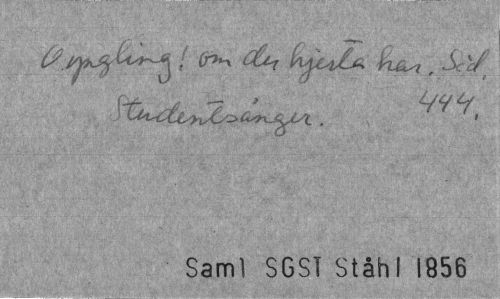 O yngling! om du hjerta har. Sid.
444.
Studentsånger.
Saml SGST Ståhl 1856